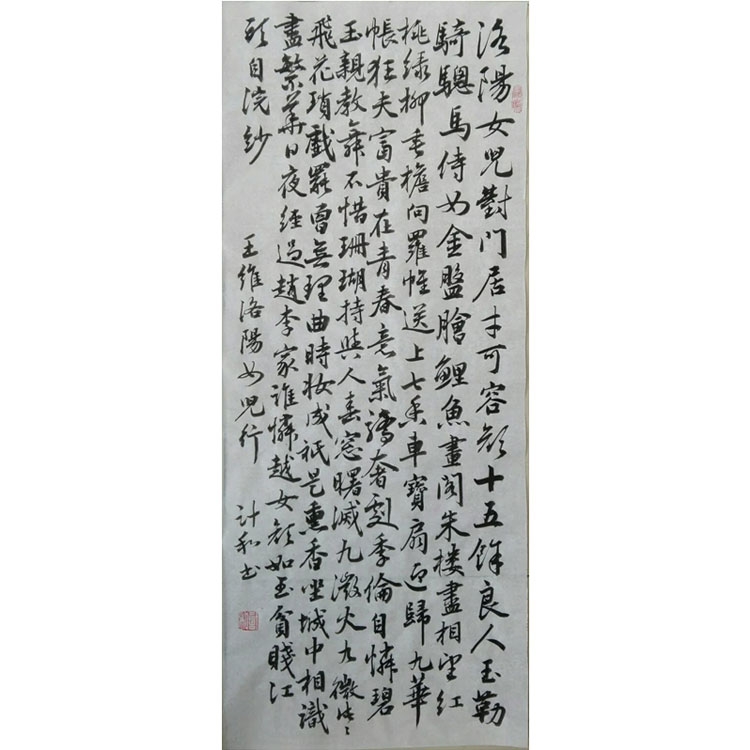 洛陽女児對門居才可容顔十五餘良人玉勒
騎驄馬侍女金盤膾鯉魚畫閣朱楼盡相望紅
桃绿柳垂檐向羅帷送上七香車寶扇迎歸九華
帳狂夫富貴在青春意氣驕奢劇季倫自憐碧
玉親教舞不惜珊瑚持與人春窓曙滅九微火九微片々
飛花瑣戲罷曾無理曲時妝成祇是熏香坐城中相識
盡繁華日夜經過趙李家誰憐越女顔如玉貧賤江
頭自浣紗 王維洛陽女児行 計和书